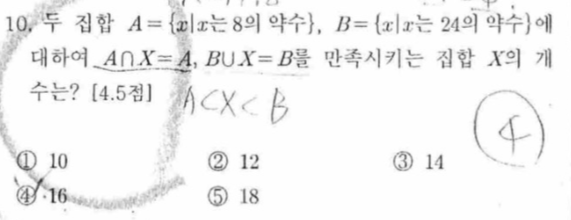 10. 두 집합 A={x|x는 8의 약수}, B={x|x는 24의 약수}에
대하여 A∩X=A, B∪X=B를 만족시키는 집합 X의 개
수는? [4.5점]
A⊂X⊂B
4
① 10 ② 12 ③ 14
④ 16 ⑤ 18